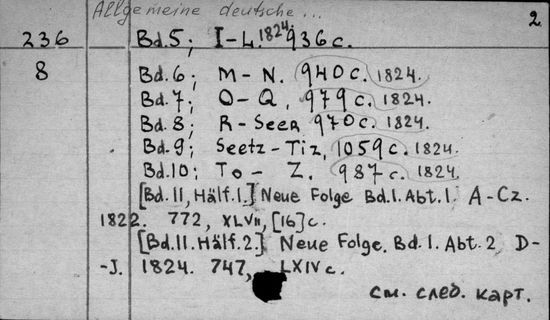 Allgemeine deutsche... 2
236 Bd.5; I-L. 1824 936 c.
8 Bd.6; M-N. 940 c. 1824.
Bd.7; O-Q, 979 c. 1824.
Bd.8; R-Seer 970 c. 1824.
Bd.9; Seetz-Tiz, 1059 c. 1824.
Bd.10; To-Z. 987 c. 1824.
[Bd.11, Hälf.1.] Neue Folge Bd.1. Abt.1. A-Cz.
1822. 772, XLVII, [16] c.
[Bd.11. Hälf.2.] Neue Folge. Bd.1. Abt.2 D-
-J. 1824. 747, LXIV c.
см. след. карт.